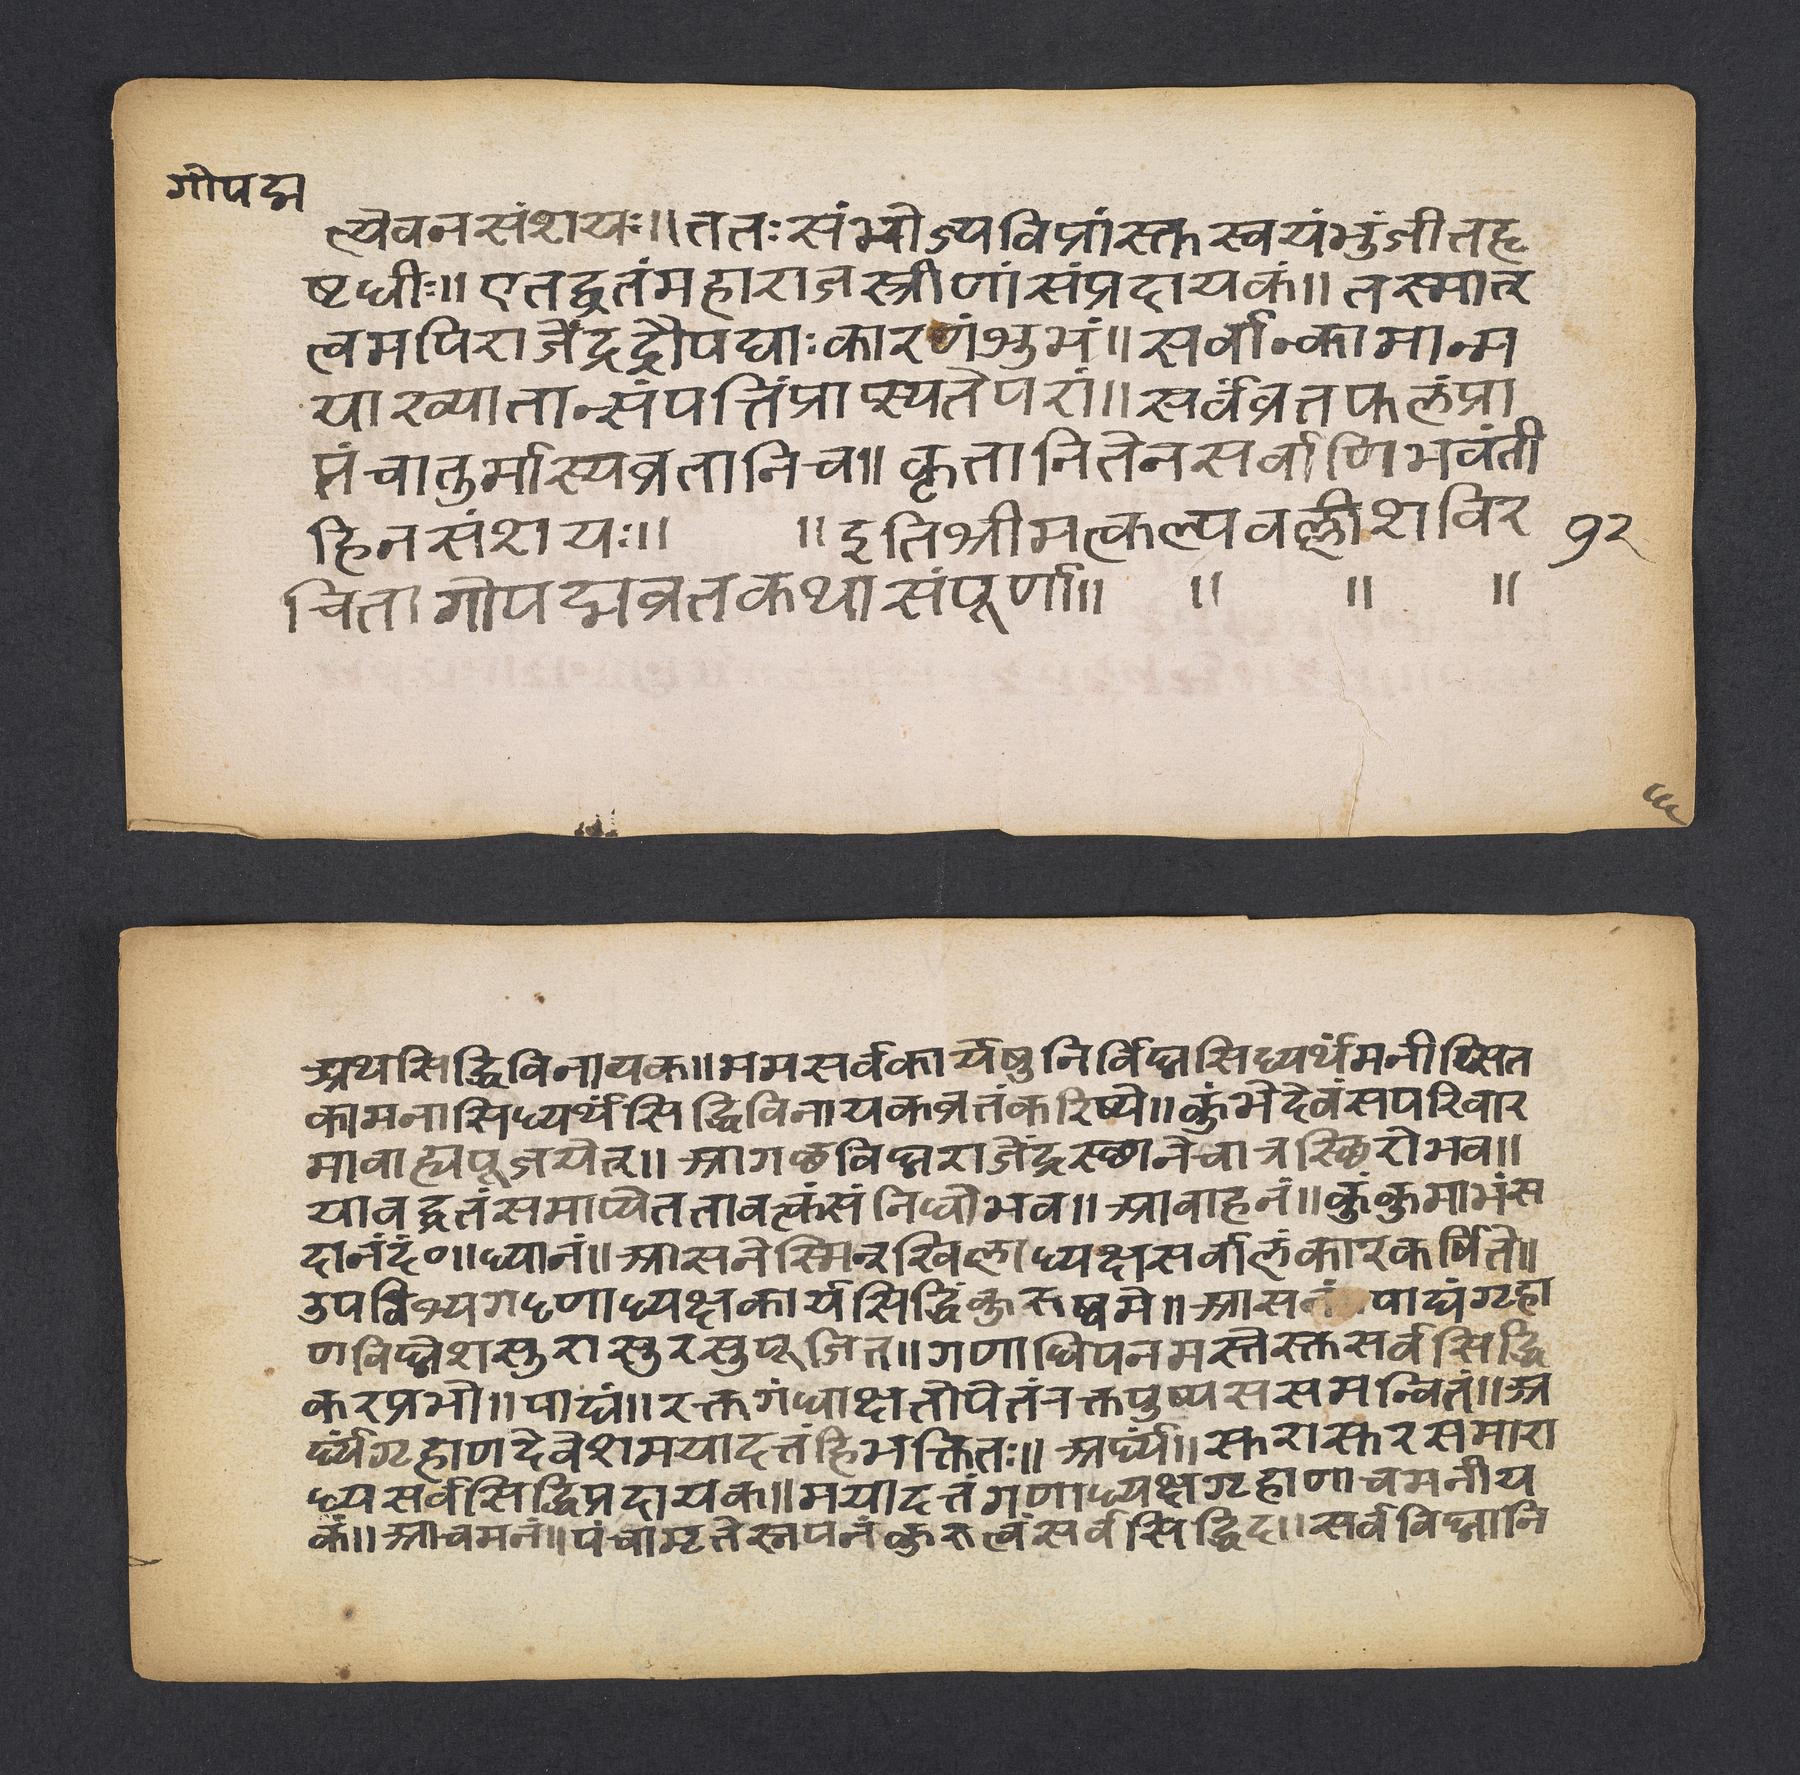 गोपद्म
त्येवनसंशयः॥ततःसंभोज्यविप्रांस्तुस्वयंभुंजीतहृ
ष्टधीः॥एतद्व्रतंमहाराजस्त्रीणांसंप्रदायकं॥तस्मात्
त्वमपिराजेंद्रद्रौपद्याःकारणंशुभं॥सर्वान्कामान्म
याख्यातान्संपत्तिंप्राप्स्यतेपरां॥सर्वव्रतफलंप्रा
प्तंचातुर्मास्यव्रतानिच॥कृतानितेनसर्वाणिभवंती
हिनसंशयः॥ ॥इतिश्रीमत्कल्पवल्लीशविर १२
चितागोपद्मव्रतकथासंपूर्णा॥ ॥ ॥ ॥
अथसिद्धिविनायक॥ममसर्वकार्येषुनिर्विघ्नसिध्यर्थंमनीप्सित
कामनासिध्यर्थंसिद्धिविनायकव्रतंकरिष्ये॥कुंभेदेवंसपरिवार
मावाह्यपूजयेत्॥आगछविघ्नराजेंद्रस्छानेचात्रस्छिरोभव॥
यावद्व्रतंसमाप्येततावत्त्वंसंनिधोभव॥आवाहनं॥कुंकुमाभंस
दानंदं०॥ध्यानं॥आसनेस्मिन्रखिलाध्यक्षसर्वालंकारकर्षिते॥
उपविश्यगद्गणाध्यक्षकार्यसिद्धिंकुरुष्वमे॥आसनं॥पाद्यंगृहा
णविघ्नेशसुरासुरसुपूजित॥गणाधिपनमस्तेस्तुसर्वसिद्धि
करप्रभो॥पाद्यं॥रक्तगंधाक्षतोपेतंरक्तपुष्पससमन्वितं॥अ
र्घ्यंगृहाणदेवेशमयादत्तंहिभक्तितः॥अर्घ्यं॥सुरासुरसमारा
ध्यसर्वसिद्धिप्रदायक॥मयादत्तंगणाध्यक्षगृहाणाचमनीय
कं॥आचमनं॥पंचामृतेस्नपनंकुरुत्वंसर्वसिद्धिद॥सर्वविघ्नानि